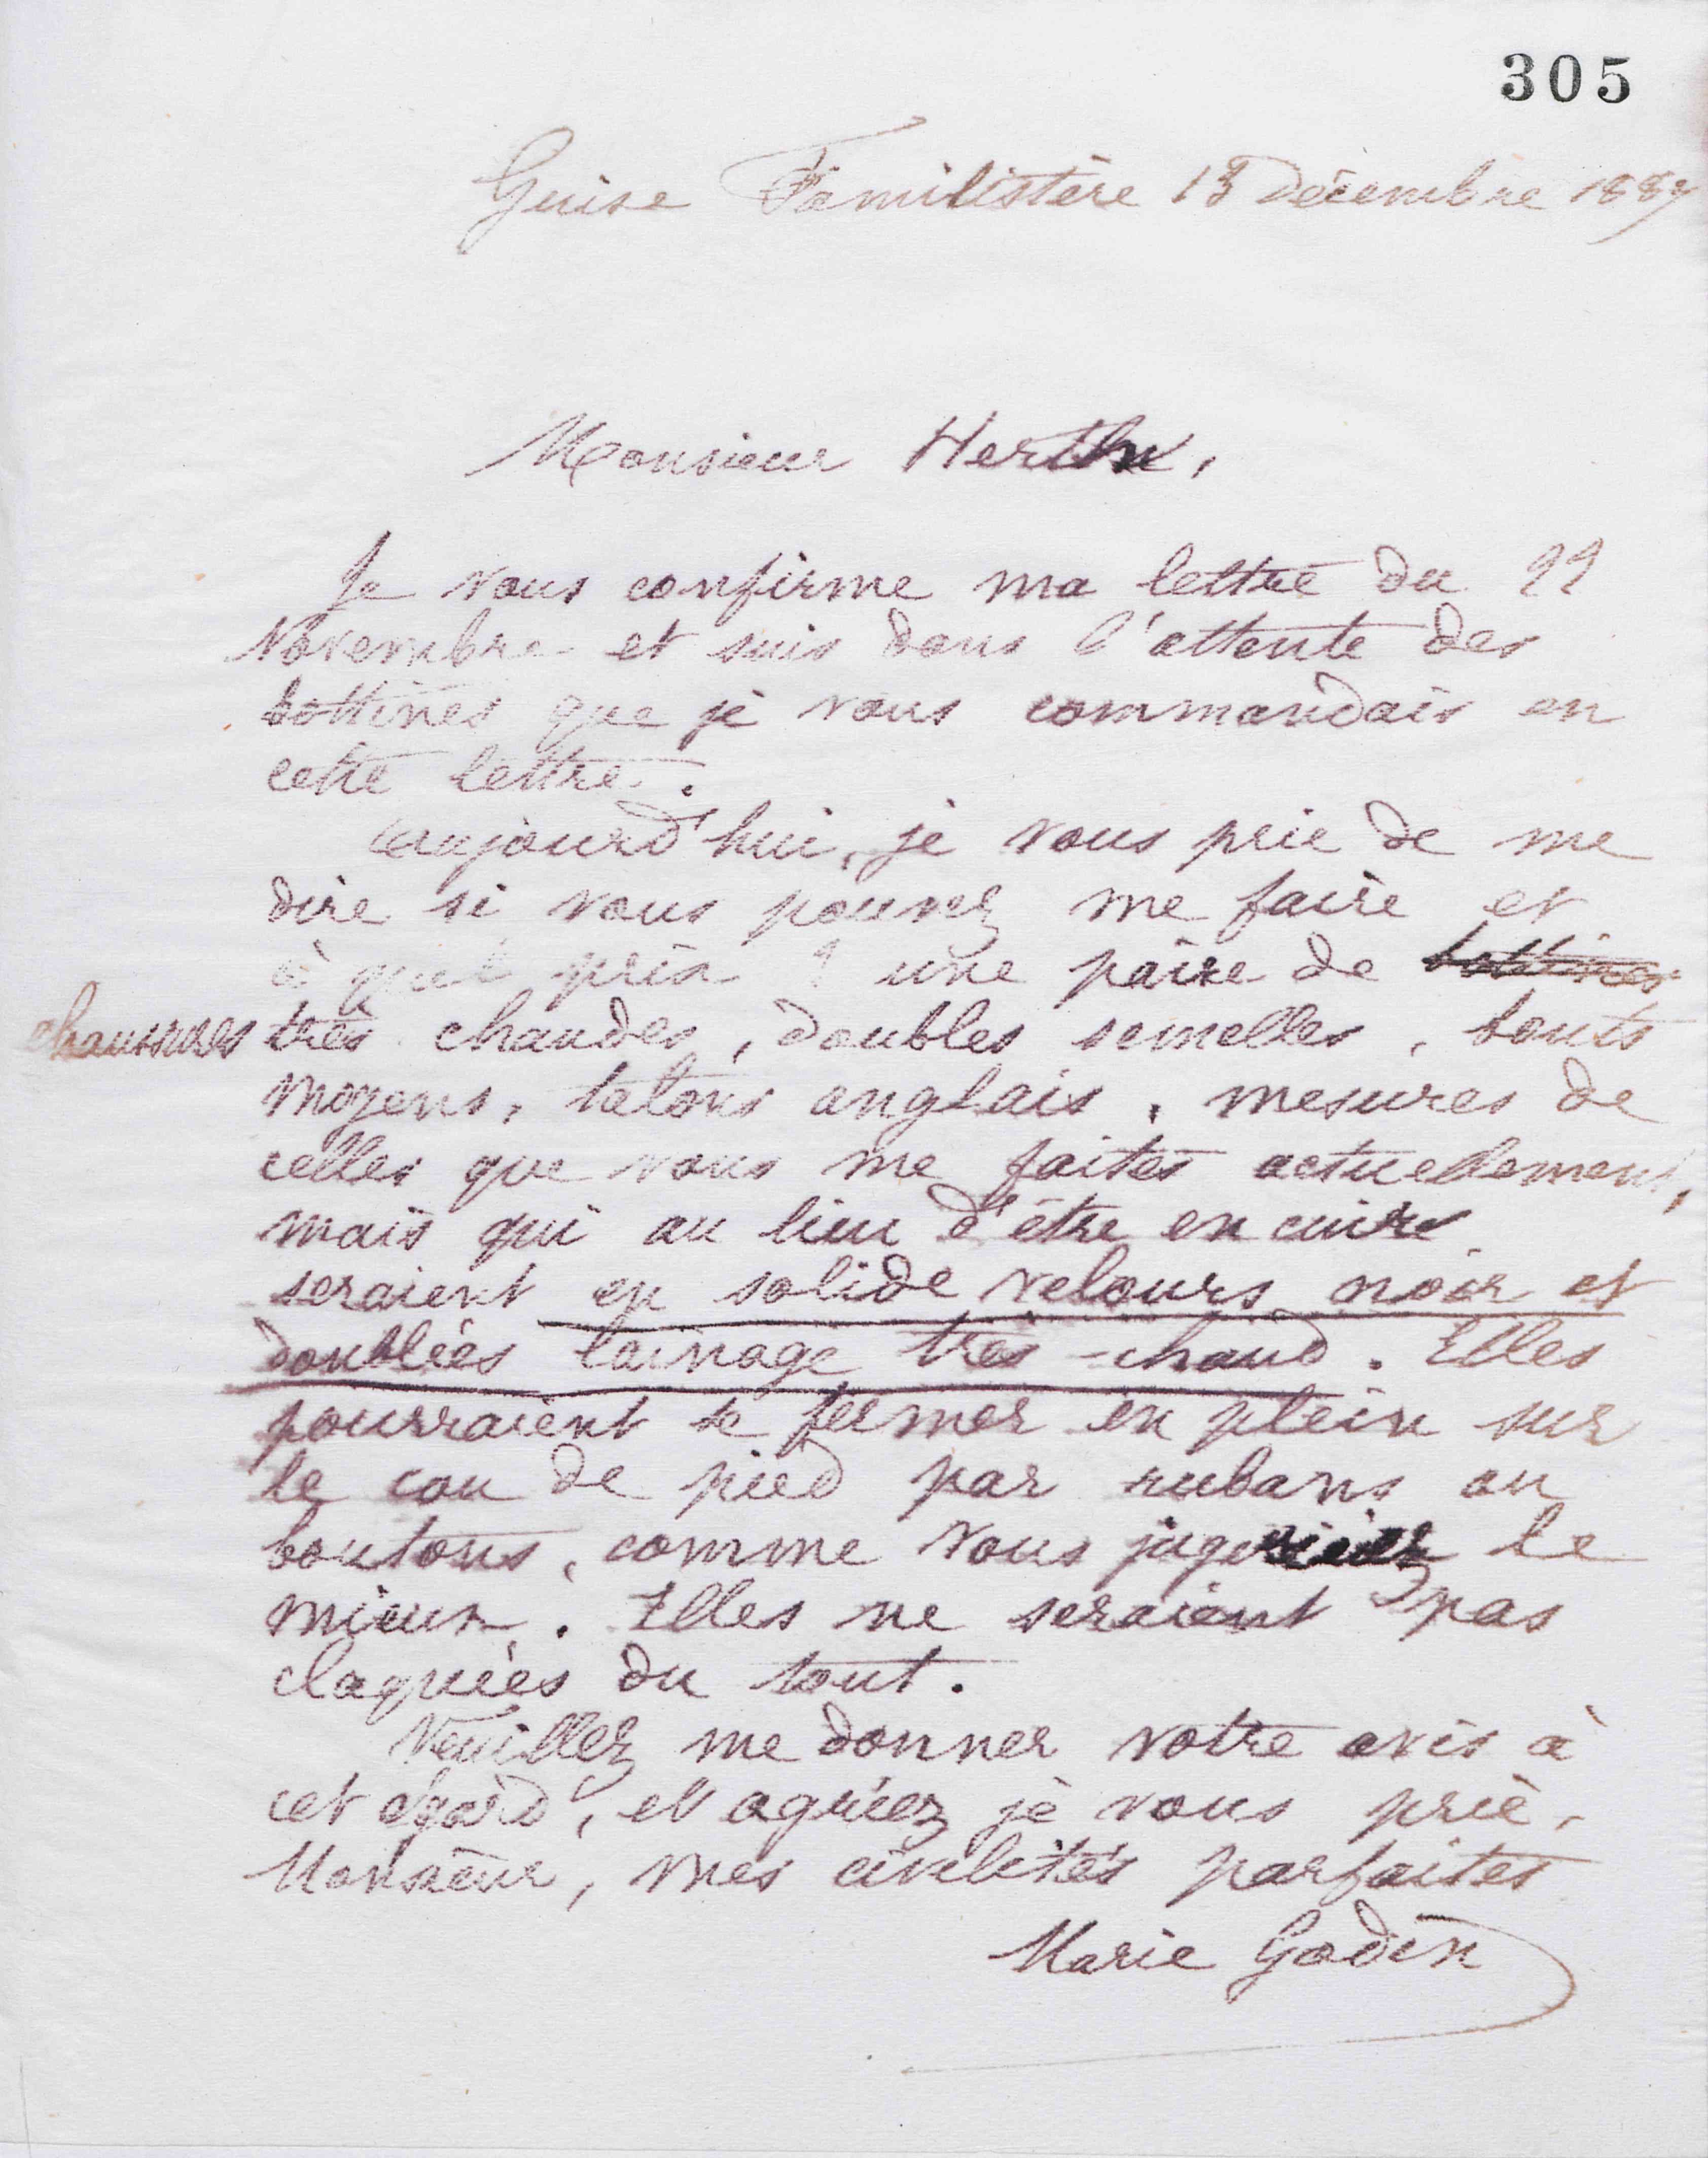 305
Guise Familistère 13 Décembre 1889
Monsieur
Je vous confirme ma lettre du
Novembre et suis dans l'attente des
bottines que je vous commandais en
cette lettre.
Aujourd'hui, je vous prie de me
dire si vous pouvez me faire et
à quel prix ? une paire de bottines
chaussures très chaudes, doubles semelles, bouts
moyens, talons anglais, mesures de
celles que vous me faites actuellement,
mais qui au lieu d'être en cuir
seraient en solide velours noir et
doublées lainage très-chaud. Elles
pourraient se fermer en plein sur
le cou de pied par rubans ou
boutons, comme vous jugeriez le
mieux. Elles ne seraient pas
claquées du tout.
Veuillez me donner votre avis à
cet égard, et agréez je vous prie,
Monsieur, mes civilités parfaites
Marie Godin